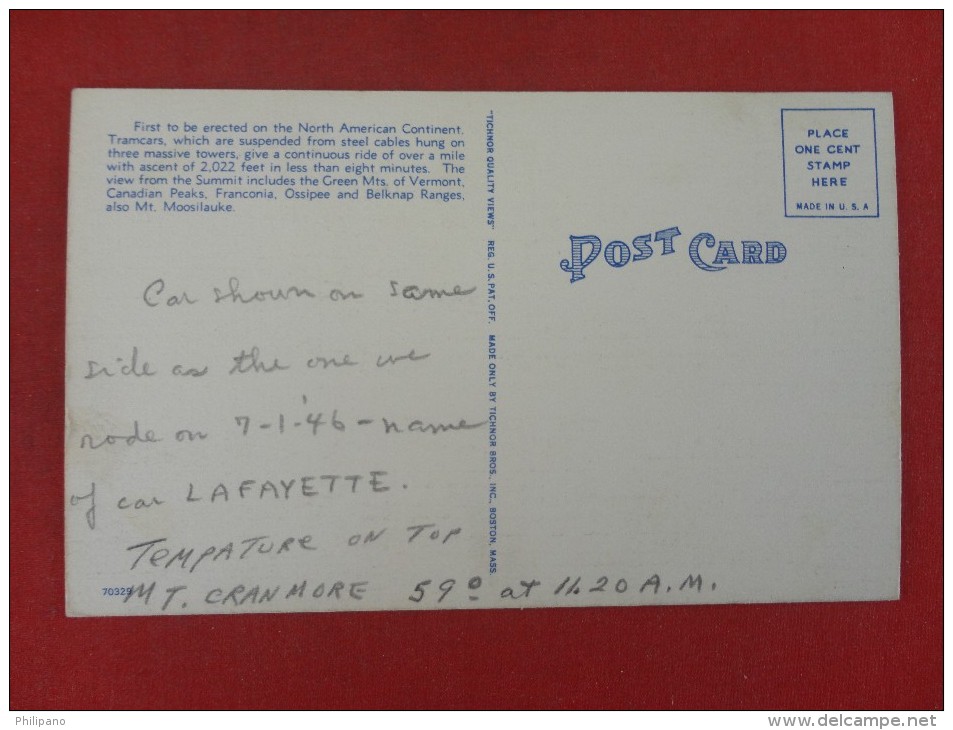 First to be erected on the North American Continent.
Tramcars, which are suspended from steel cables hung on
three massive towers, give a continuous ride of over a mile
with ascent of 2,022 feet in less than eight minutes. The
view from the Summit includes the Green Mts. of Vermont,
Canadian Peaks, Franconia, Ossipee and Belknap Ranges,
also Mt. Moosilauke.
Car shown on same
side as the one we
rode on 7-1-'46-name
of car LAFAYETTE.
TEMPATURE ON TOP
MT. CRANMORE 59° at 11.20 A.M.
70329
"TICHNOR QUALITY VIEWS" REG. U.S. PAT. OFF. MADE ONLY BY TICHNOR BROS., INC., BOSTON, MASS.
POST CARD
PLACE
ONE CENT
STAMP
HERE
MADE IN U. S. A
Philipano
www.delcampe.net